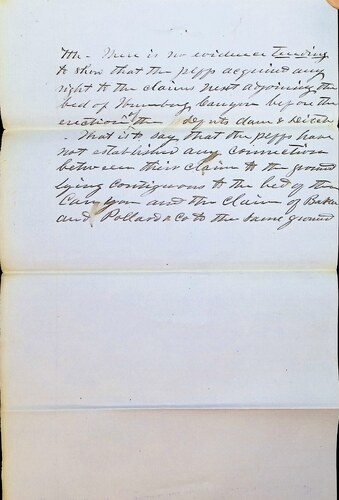 7th - There is no evidence tending
to show that the plffs acquired any
right to the claims next adjoining the
bed of Humbug Canyon before the
erection of the defts dam & Ditch
- That is to say that the plffs have
not established any connection
between their claim to the ground
lying contiguous to the bed of the
Canyon and the claim of Baker
and Pollard & co to the same ground